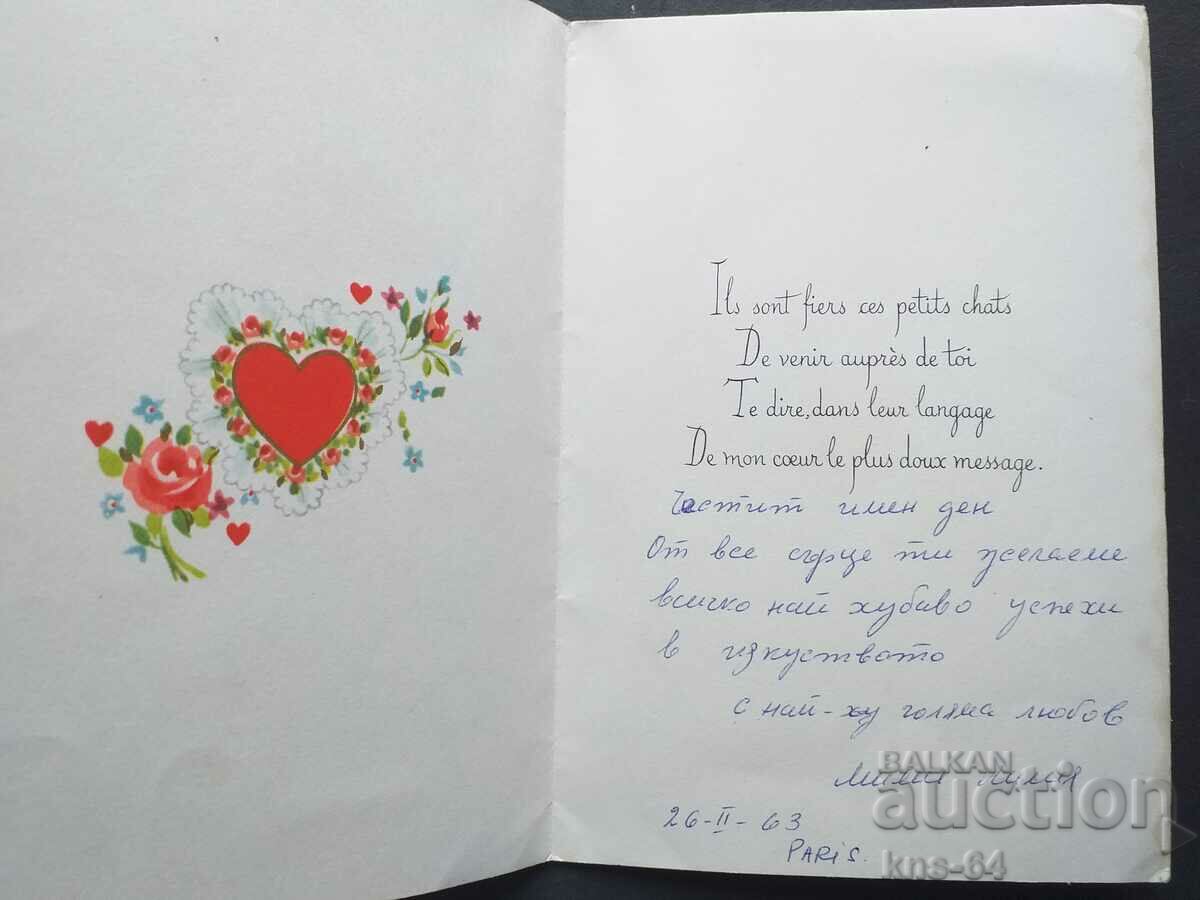 Ils sont fiers ces petits chats
De venir auprès de toi
Te dire, dans leur langage
De mon cœur le plus doux message.
Честит имен ден
От все сърце ти желаеме
всичко най хубаво успехи
в изкуството
с най-ху голяма любов
Мими
26-II-63
PARIS.
BALKAN
auction
kns-64